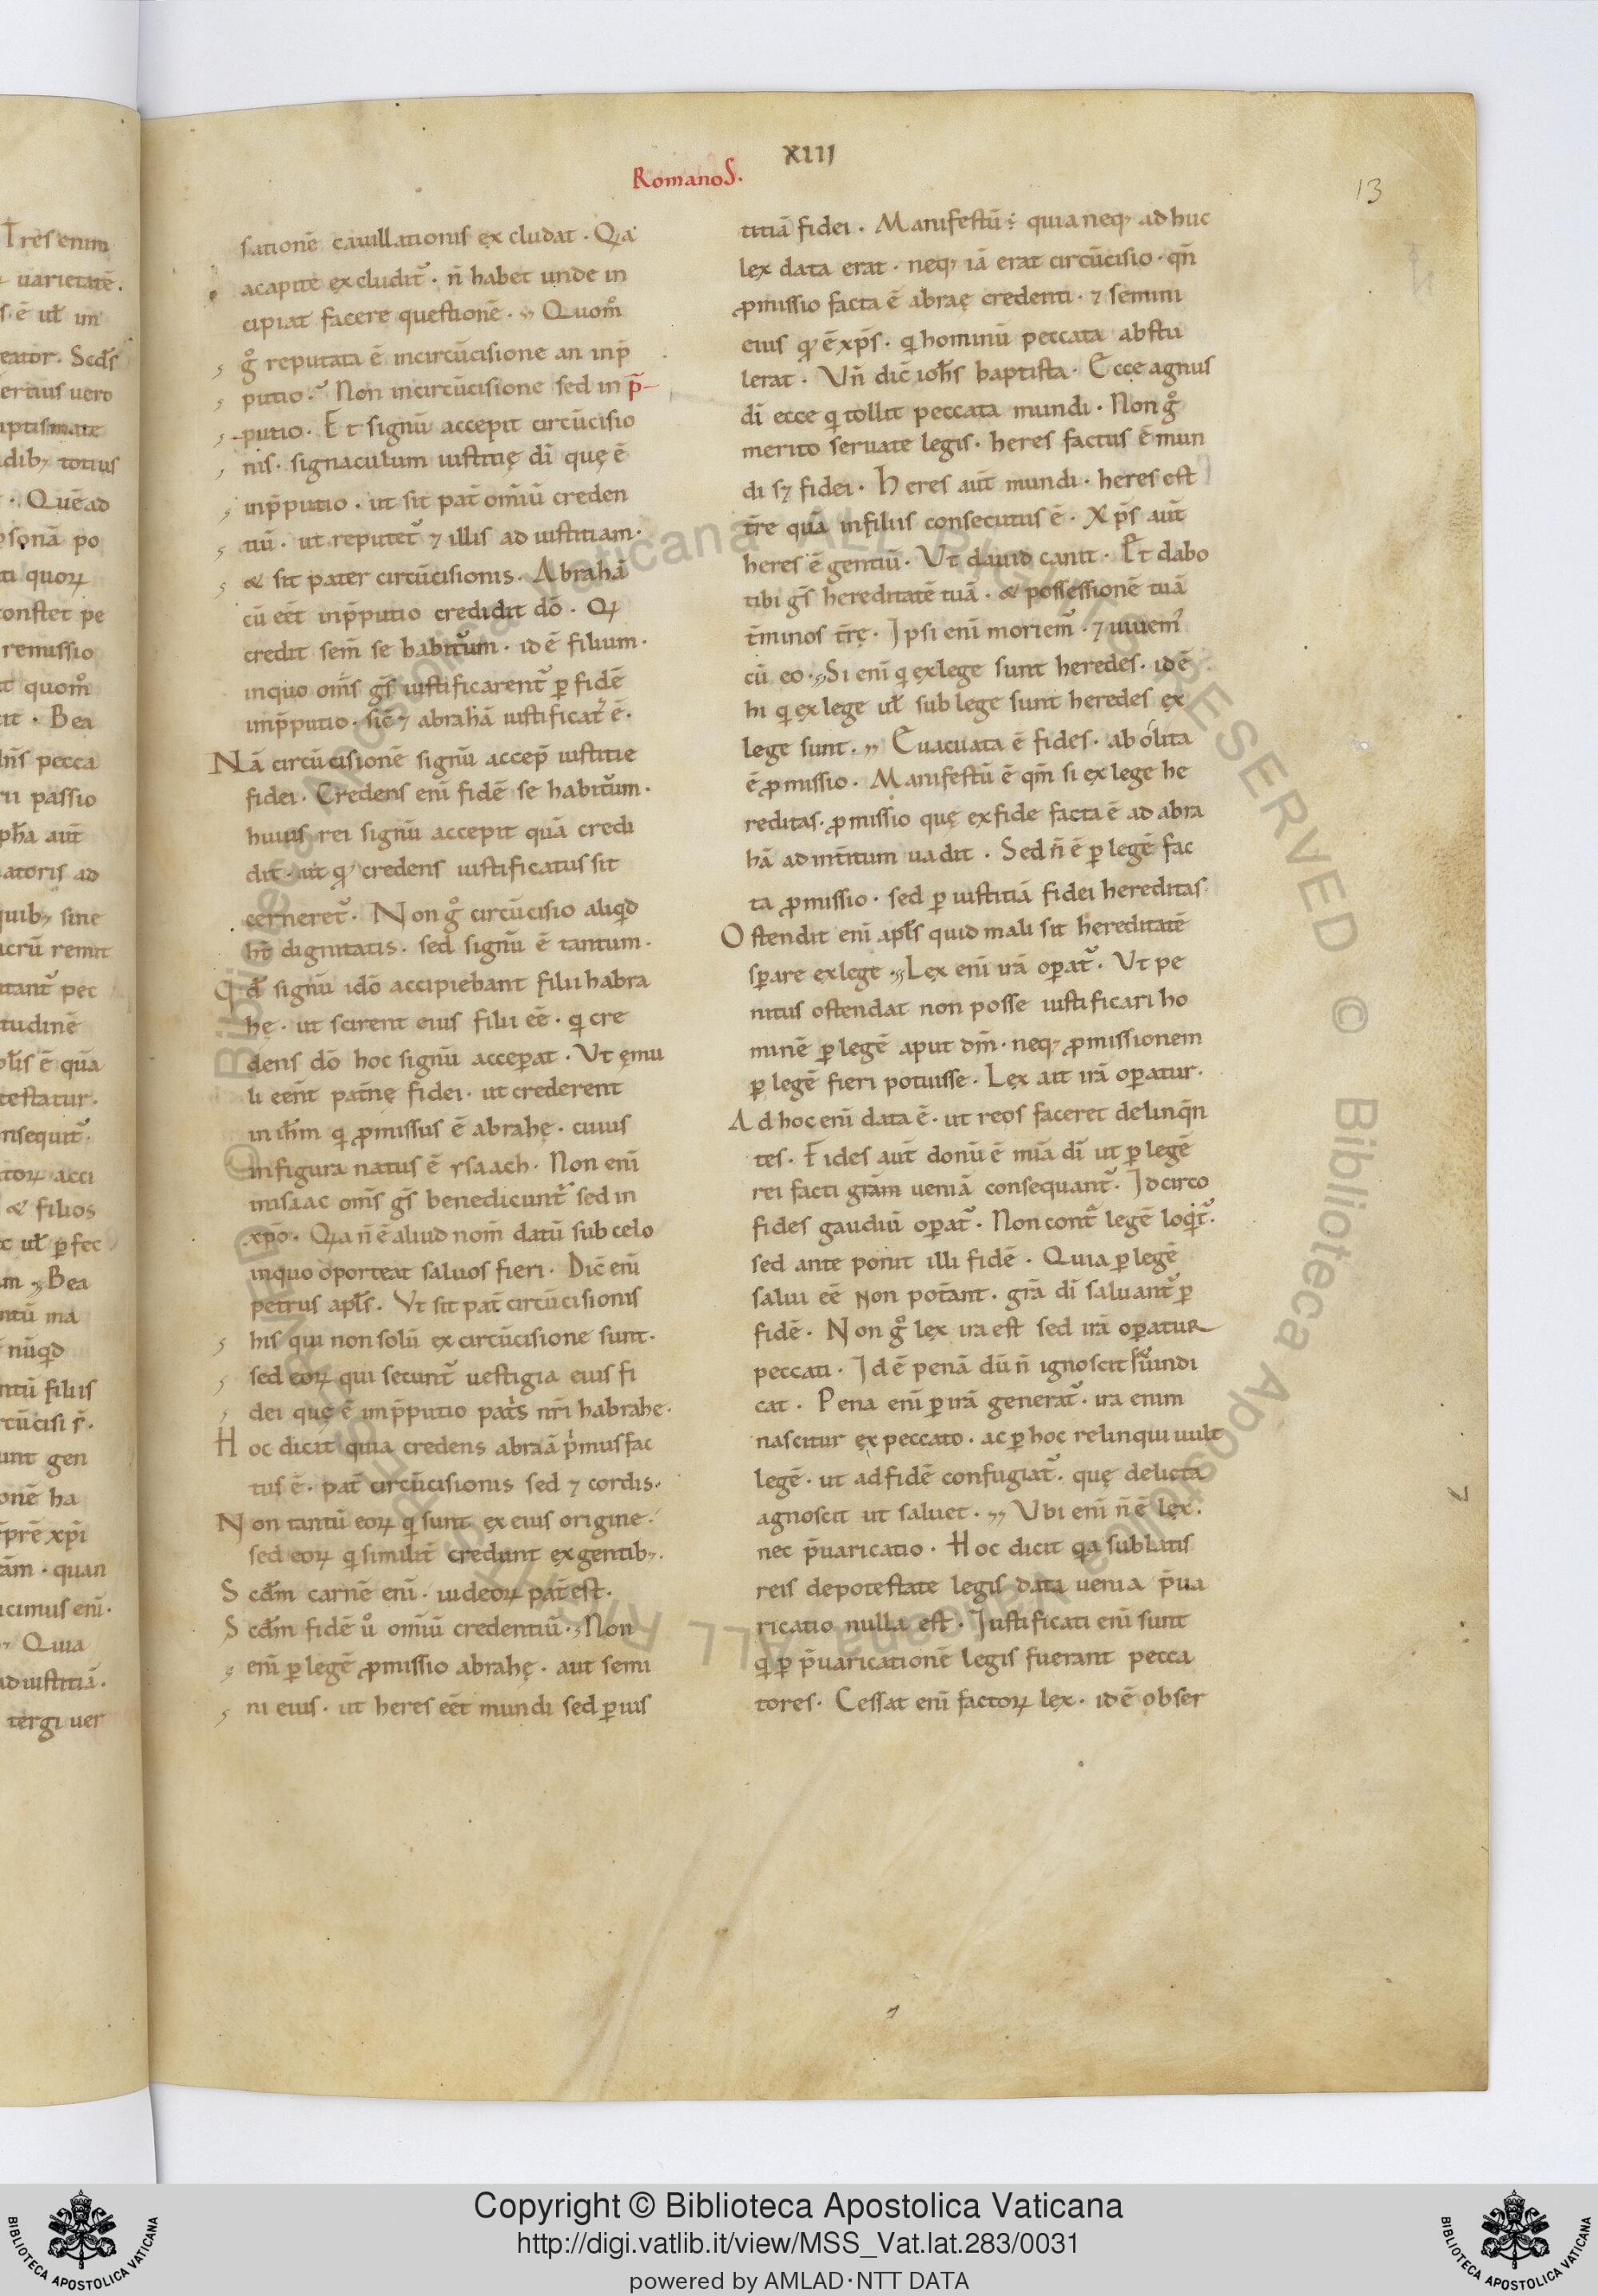 XIII
RomanoS.
13
Tres enim
uarietatē.
s. ē ut̄ in
eator. Scds̄
ertius uero
uptismate
dib; totius
. Quē ad
sonā po
ti quoꝝ
onstet pe
remissio
t quom̊
it . Bea
ln̄s pecca
rii passio
ph̄a aut̄
atoris ad
quib; sine
acrū remit
utant᷑ pec
tudinē
ol̄is ē quā
testatur.
nsequit᷑.
toꝝ acci
& filios
c ut̄ ꝑfec
m ,, Bea
ntū ma
nūqd
ntū filiis
rcūcisi r̄.
unt gen
onē ha
prē xp̄i
ām . quan
icimus enī.
Quia
ad iustitiā.
tergi uer
satione͞ cauillationis ex cludat . Qa
a capite excludit᷑ . n̄ habet unde in
cipiat facere questionē . ,, Quom̊
g̊ reputata ē in circūcisione an in p̄
putio.᷑ Non in circūcisione sed in p̄-
-putio . Et signū accepit circūcisio
nis . signaculum iustitię dī quę ē
in p̄putio . ut sit pat̄ om̄iū creden
tiū . ut reputet᷑ ⁊ illis ad iustitiam .
& sit pater circūcisionis . Abrahā
cū eēt in p̄putio credidit dō . Qꝝ
credit sem̄ se habitūum . id ē filium .
in quo om̄s gs̄ iustificarent᷑ ꝑ fidē
in p̄putio . sic̄ ⁊ abrahā iustificat᷒ ē .
Nā circūcisionē signū accep̄ iustitie
fidei . Credens enī fidē se habitūum .
huius rei signū accepit quā credi
dit . ut qꝫ credens iustificatus sit
cerneret᷑ . Non g̊ circūcisio aliqd
ht̄ dignitatis . sed signū ē tantum .
Qd̄ signū idō accipiebant filii habra
hę . ut scirent eius filii eē . q cre
dens dō hoc signū acceꝑat . Ut ęmu
li eēnt pat̄nę fidei . ut crederent
in ih̄m q ꝓmissus ē abrahę . cuius
in figura natus ē ysaach . Non enī
in isaac om̄s gs̄ benedicunt᷑ sed in
xp̄o . Qa n̄ ē aliud nom̄ datū sub celo
in quo oporteat saluos fieri . Dic̄ enī
petrus apl̄s . Ut sit pat̄ circūcisionis
his qui non solū ex circūcisione sunt .
sed eoꝝ qui secunt᷑ uestigia eius fi
dei quę ē in p̄putio pat̄s nr̄i habrahe .
Hoc dicit quia credens abraā pͥmus fac
tus ē . pat̄ circūcisionis sed ⁊ cordis .
Non tantū eoꝝ q sunt ex eius origine .
sed eoꝝ q similit̄ credunt ex gentib; .
Scdm̄ carnē enī . iudeoꝝ pat̄ est .
Scdm̄ fidē ů om̄iū credentiū . ,, Non
enī ꝑ legē ꝓmissio abrahę . aut semi
ni eius . ut heres eēt mundi sed ꝑ ius
titiā fidei . Manifestū ē quia neqꝫ adhuc
lex data erat . neqꝫ iā erat circūcisio . qn̄
ꝓmissio facta ē abraę credenti . ⁊ semini
eius qꝫ ē xp̄s . q hominū peccata abstu
lerat . Un̄ dic̄ ioh̄s baptista . Ecce agnus
dī ecce q tollit peccata mundi . Non g̊
merito seruate legis . heres factus ē mun
di sꝫ fidei . Heres aut̄ mundi . heres est
t̄re quā in filiis consecutus ē . Xp̄s aut̄
heres ē gentiū . Ut dauid canit . Et dabo
tibi gs̄ hereditatē tuā . & possessionē tuā
t̄minos t̄rę . Ipsi enī moriem᷑ . ⁊ uiuem᷒
cū eo . ,, Si enī q ex lege sunt heredes . id ē
hi q ex lege ut̄ sub lege sunt heredes ex
lege sunt . ,, Euacuata ē fides . abolita
ē ꝓmissio . Manifestū ē qm̄ si ex lege he
reditas . ꝓmissio quę ex fide facta ē ad abra
hā ad int̄itum uadit . Sed n̄ ē ꝑ legē fac
ta ꝓmissio . sed ꝑ iustitiā fidei hereditas .
Ostendit enī apl̄s quid mali sit hereditatē
sꝑare ex lege . ,, Lex enī irā oꝑat᷑ . Ut pe
nitus ostendat non posse iustificari ho
minē ꝑ legē aput dm̄ . neqꝫ ꝓmissionem
ꝑ legē fieri potuisse . Lex ait irā oꝑatur .
Ad hoc enī data ē . ut reos faceret delinq̄n
tes . Fides aut̄ donū ē mīa dī ut ꝑ legē
rei facti grām ueniā consequant᷑ . Idcirco
fides gaudiū oꝑat᷑ . Non cont᷑ legē loqͥt᷑ .
sed ante ponit illi fidē . Quia ꝑ legē
salui eē non pot̄ant . grā dī saluant᷑ ꝑ
fidē . Non g̊ lex ira est sed irā oꝑatur
peccati . Id ē penā dū n̄ ignoscit s; uindi
cat . Pena enī ꝑ irā generat᷑ . ira enim
nascitur ex peccato . ac ꝑ hoc relinqui uult
legē . ut ad fidē confugiat᷑ . quę delicta
agnoscit ut saluet . ,, Ubi enī n̄ ē lex .
nec p̄uaricatio . Hoc dicit qa sublatis
reis de potestate legis data uenia p̄ua
ricatio nulla est . Iustificati enī sunt
q ꝑ p̄uaricationē legis fuerant pecca
tores . Cessat enī factoꝝ lex . id ē obser
Copyright © Biblioteca Apostolica Vaticana
http://digi.vatlib.it/view/MSS_Vat.lat.283/0031
powered by AMLAD·NTT DATA
BIBLIOTECA APOSTOLICA VATICANA
BIBLIOTECA APOSTOLICA VATICANA